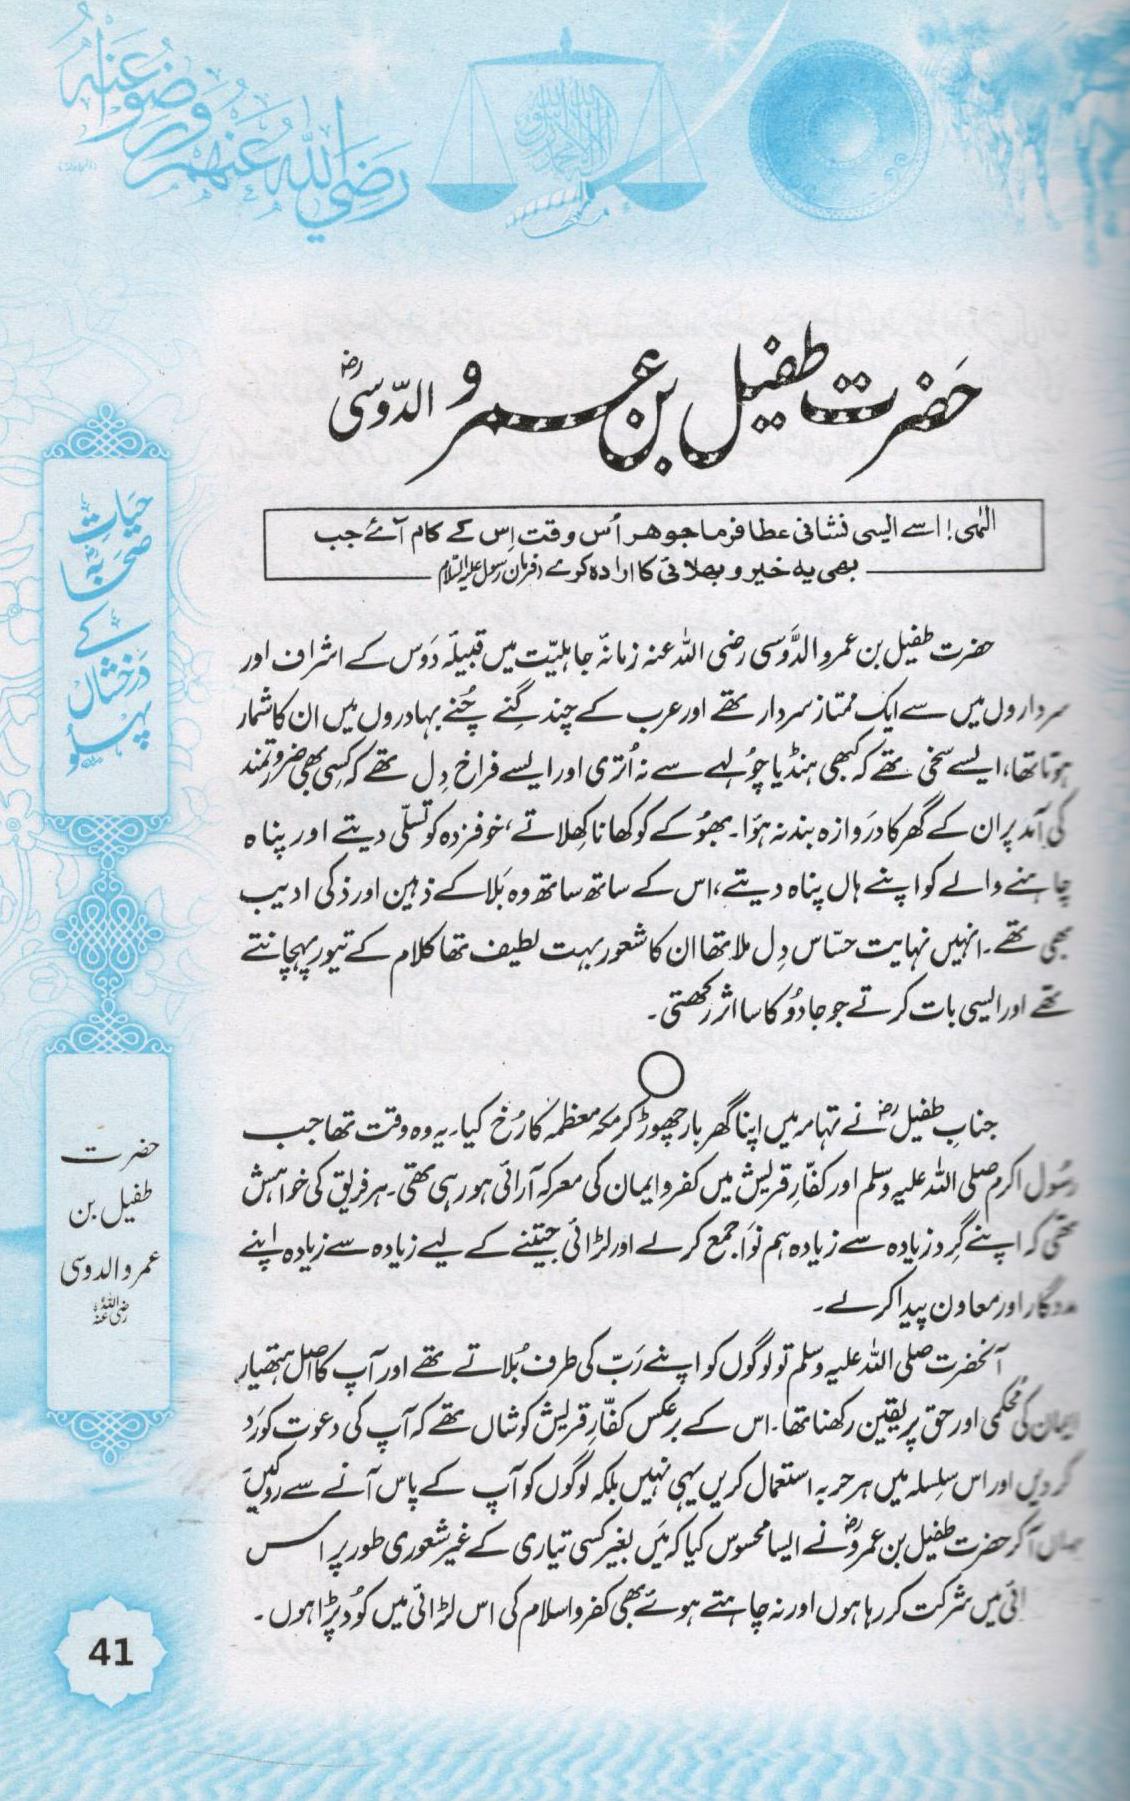 رضی اللہ عنہم ورضوا عنہ
حضرت طفیل بن عمرو الدّوسیؓ
الٰہی! اسے ایسی نشانی عطا فرما جو ہر اُس وقت اِس کے کام آئے جب
بھی یہ خیر و بھلائی کا ارادہ کرے (فرمان رسول علیہ السلام
حضرت طفیل بن عمرو الدَّوسی رضی اللہ عنہ زمانۂ جاہلیّت میں قبیلۂ دَوس کے اشراف اور
سرداروں میں سے ایک ممتاز سردار تھے اور عرب کے چند گِنے چُنے بہادروں میں ان کا شمار
ہوتا تھا، ایسے سخی تھے کہ کبھی ہنڈیا چُولہے سے نہ اُتری اور ایسے فراخ دِل تھے کہ کسی بھی ضرورتمند
کی آمد پر ان کے گھر کا دَروازہ بند نہ ہوَا۔ بھوُکے کو کھانا کھِلاتے، خوفزدہ کو تسلّی دیتے اور پناہ
چاہنے والے کو اپنے ہاں پناہ دیتے، اس کے ساتھ ساتھ وہ بَلا کے ذہین اور ذکی ادیب
بھی تھے۔ انہیں نہایت حسّاس دِل ملا تھا ان کا شعور بہت لطیف تھا کلام کے تیور پہچانتے
تھے اور ایسی بات کرتے جو جادُو کا سا اثر رکھتی۔
جنابِ طفیلؓ نے تہامہ میں اپنا گھر بار چھوڑ کر مکہ معظمہ کا رُخ کیا۔ یہ وہ وقت تھا جب
رسُول اکرم صلی اللہ علیہ وسلم اور کفّارِ قریش میں کفر و ایمان کی معرکہ آرائی ہو رہی تھی۔ ہر فریق کی خواہش
تھی کہ اپنے گِرد زیادہ سے زیادہ ہم نوَا جمع کر لے اور لڑائی جیتنے کے لیے زیادہ سے زیادہ اپنے
مددگار اور معاون پیدا کر لے۔
آنحضرت صلی اللہ علیہ وسلم تو لوگوں کو اپنے رَبّ کی طرف بُلاتے تھے اور آپ کا اصل ہتھیار
ایمان کی محکمی اور حق پر یقین رکھنا تھا۔ اس کے برعکس کفّارِ قریش کوشاں تھے کہ آپ کی دعوت کو رَد
کر دیں اور اس سِلسلہ میں ہر حربہ استعمال کریں یہی نہیں بلکہ لوگوں کو آپ کے پاس آنے سے روکیں
یہاں آ کر حضرت طفیل بن عمروؓ نے ایسا محسوس کیا کہ مَیں بغیر کسی تیاری کے غیر شعوری طور پر اس
ائی میں شرکت کر رہا ہوں اور نہ چاہتے ہوئے بھی کفر و اسلام کی اس لڑائی میں کوُد پڑا ہوں۔
حیاتِ
صحابہؓ
کے
درخشاں
پہلو
حضرت
طفیل بن
عمرو الدوسی
رضی اللہ عنہ
41